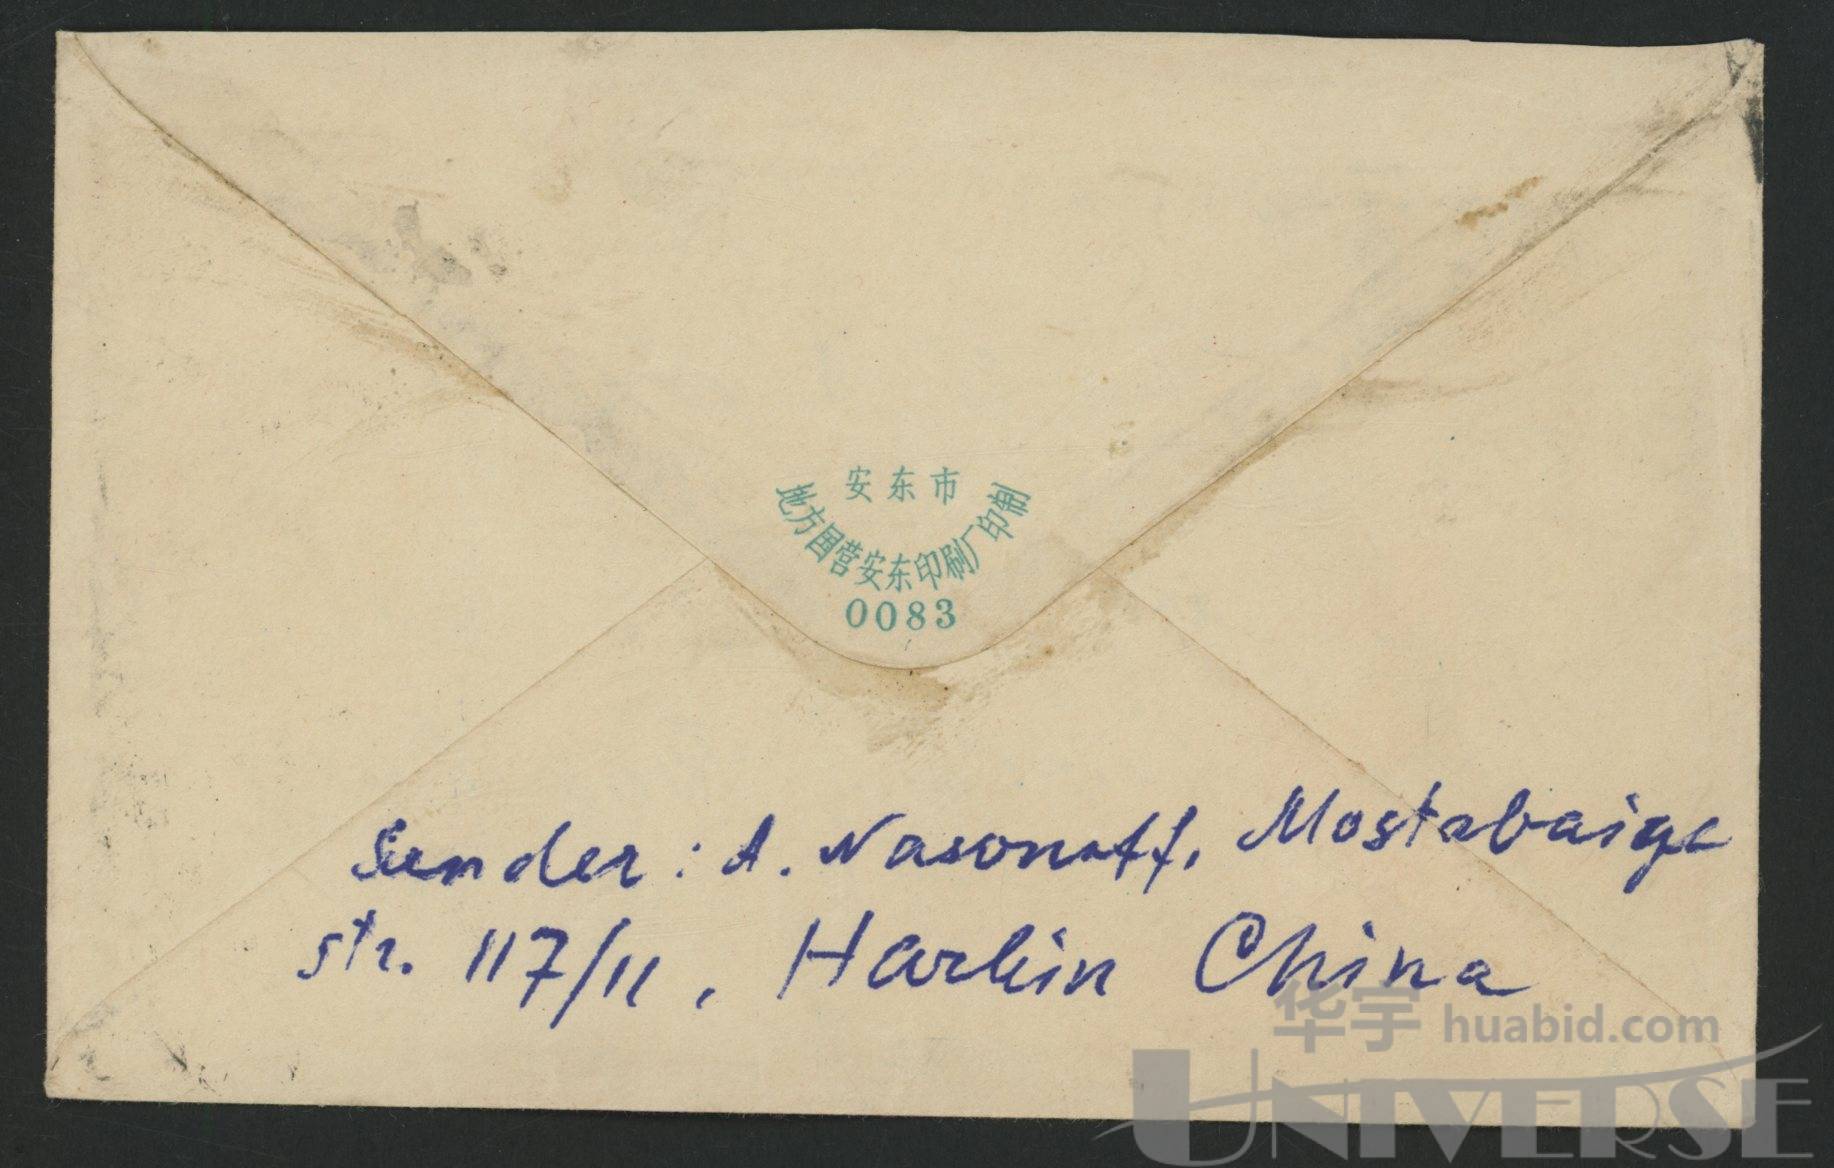 安东市
地方国营安东印刷厂印制
0083
Sender: A. Nasonoff, Mostabaiga
str. 117/11, Harbin China
华宇 huabid.com
UNIVERSE